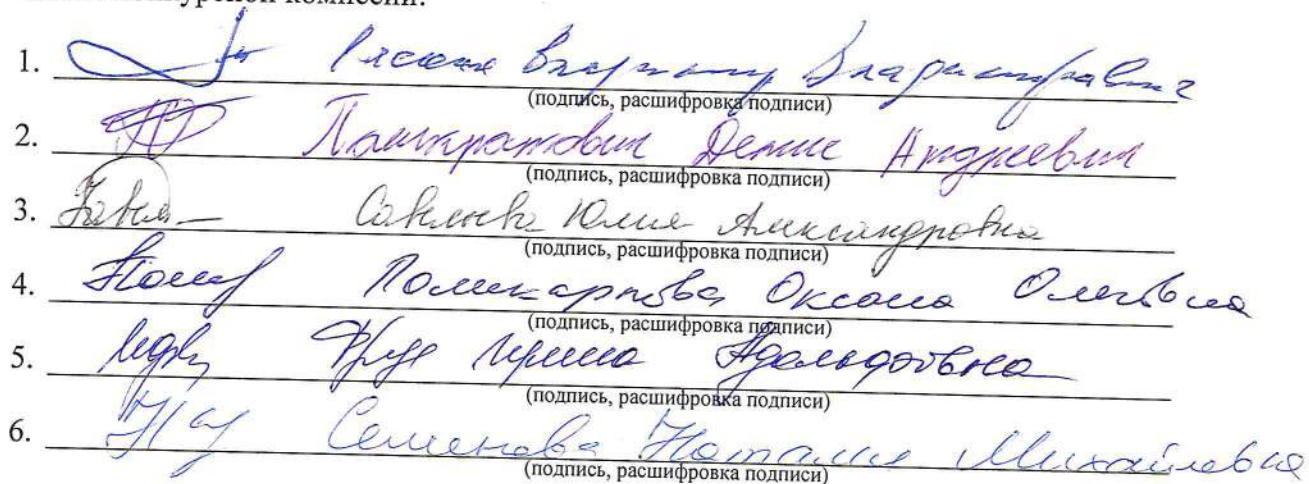 конкурсной комиссии:
1. Владимир Владимирович
(подпись, расшифровка подписи)
2. Панкратович Денис Андреевич
(подпись, расшифровка подписи)
3. Савельева Юлия Александровна
(подпись, расшифровка подписи)
4. Поликарпова Оксана Олеговна
(подпись, расшифровка подписи)
5. Ирина Адольфовна
(подпись, расшифровка подписи)
6. Семенова Наталия Михайловна
(подпись, расшифровка подписи)